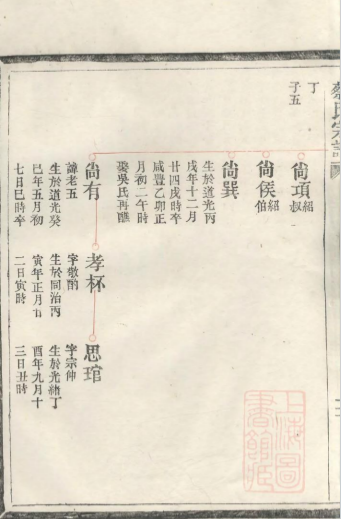 丁
子五
尙項 紹叔
尙俟 紹伯
尙巽
生於道光丙
戌年十二月
廿四戌時卒
咸豐乙卯正
月初二午時
娶吳氏再醮
尙有
諱老五
生於道光癸
巳年五月初
七日巳時卒
孝杯
字敬酌
生於同治丙
寅年正月廿
二日寅時
思琯
字宗仲
生於光緒丁
酉年九月十
三日丑時
上海圖
書館藏